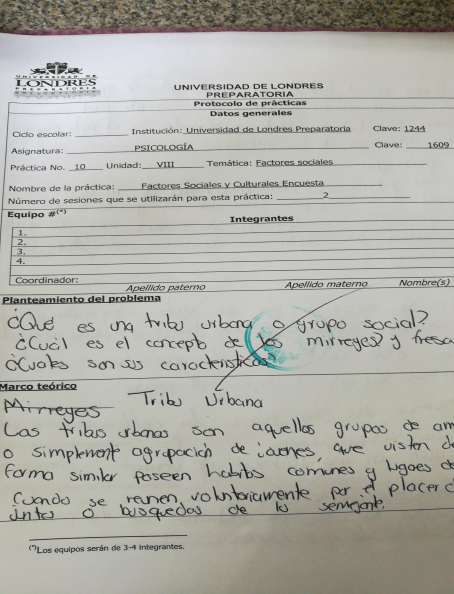 UNIVERSIDAD DE
LONDRES
PREPARATORIA
UNIVERSIDAD DE LONDRES
PREPARATORIA
Protocolo de prácticas
Datos generales
Ciclo escolar: Institución: Universidad de Londres Preparatoria Clave: 1244
Asignatura: PSICOLOGÍA Clave: 1609
Práctica No. 10 Unidad: VIII Temática: Factores sociales
Nombre de la práctica: Factores Sociales y Culturales Encuesta
Número de sesiones que se utilizarán para esta práctica: 2
Equipo #(*) Integrantes
1.
2.
3.
4.
Coordinador:
Apellido paterno Apellido materno Nombre(s)
Planteamiento del problema
¿Qué es una tribu urbana o grupo social?
¿Cuál es el concepto de los mirreyes y fresa
¿Cuales son sus caracteristicas?
Marco teórico
Mirreyes Tribu Urbana
Las tribus urbanas son aquellos grupos de am
o simplemente agrupación de jovenes, que visten de
forma similar poseen habitos comunes y lugares de
Cuando se reunen, voluntariamente por el placer d
o busquedas de lo semejante.
(*)Los equipos serán de 3-4 integrantes.